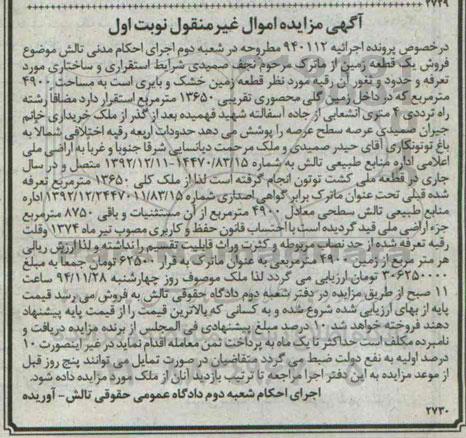 ۲۷۲۹
آگهی مزایده اموال غیر منقول نوبت اول
درخصوص پرونده اجرائیه ۹۴۰۱۱۲ مطروحه در شعبه دوم اجرای احکام مدنی تالش موضوع
فروش یک قطعه زمین از ماترک مرحوم نجف صمیدی شرایط استقراری و ساختاری مورد
تعرفه و حدود و ثغور آن رقبه مورد نظر قطعه زمین خشک و بایری است به مساحت ۴۹۰۰
مترمربع که در داخل زمین کلی محصوری تقریبی ۱۳۶۵۰ مترمربع استقرار دارد مضافا رشته
راه ترددی ۴ متری انشعابی از جاده آسفالته شهید فهمیده بعد از گذر از ملک خریداری خاتم
جیران صمیدی عرصه سطح عرصه را پوشش می دهد حدودات اربعه رقبه اختلافی شمالا به
باغ توتونکاری آقای حیدر صمیدی و ملک مرحمت دیانسایی شرقا جنوبا و غربا به اراضی ملی
اعلامی اداره منابع طبیعی تالش به شماره ۱۴۴۷۰/۸۳/۱۵-۱۳۹۲/۱۲/۱۱ متصل و در سال
جاری در قطعه ملی کشت توتون انجام گرفته است لذا از ملک کلی ۱۳۶۵۰ مترمربع تعرفه
شده قبلی تحت عنوان ماترک برابر گواهی اصداری شماره ۱۱/۸۳/۱۵-۱۳۹۲/۱۲/۲۴۴۷۰ اداره
منابع طبیعی تالش سطحی معادل ۴۹۰۰ مترمربع از آن مستثنیات و باقی ۸۷۵۰ مترمربع
جزء اراضی ملی قید گردیده است با احتساب قانون حفظ و کاربری مصوب تیر ماه ۱۳۷۴ وقت
رقبه تعرفه شده از حد نصاب مربوطه و کثرت وراث قابلیت تقسیم را نداشته و لذا ارزش ریالی
هر متر مربع از زمین ۴۹۰۰ مترمربعی به عنوان ماترک به قرار ۶۲۵۰۰ تومان جمعا به مبلغ
۳۰۶۲۵۰۰۰۰ تومان ارزیابی می گردد لذا ملک موصوف روز چهارشنبه ۹۴/۱۱/۲۸ ساعت
۱۱ صبح از طریق مزایده در دفتر شعبه دوم دادگاه حقوقی تالش به فروش می رسد قیمت
پایه از بهای ارزیابی شده شروع شده و به کسانی که بالاترین قیمت را از قیمت پایه پیشنهاد
دهند فروخته خواهد شد ۱۰ درصد مبلغ پیشنهادی فی المجلس از برنده مزایده دریافت و
نامبرده مکلف است حداکثر تا یک ماه به پرداخت ثمن معامله اقدام نماید در غیر اینصورت ۱۰
درصد اولیه به نفع دولت ضبط می گردد متقاضیان در صورت تمایل می توانند پنج روز قبل
از موعد مزایده به این دفتر اجرا مراجعه تا ترتیب بازدید آنان از ملک مورد مزایده داده شود.
اجرای احکام شعبه دوم دادگاه عمومی حقوقی تالش - آوریده
۲۷۳۰